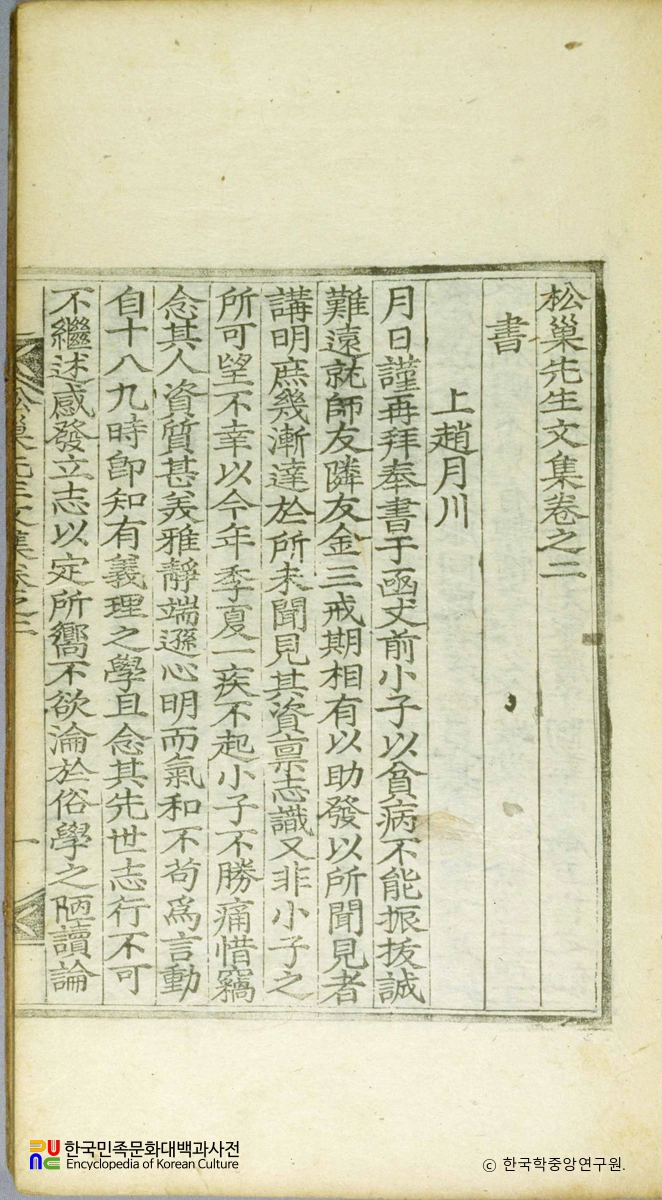 松巢先生文集卷之二
書
上趙月川
月日謹再拜奉書于函丈前小子以貧病不能振拔誠
難遠就師友隣友金三戒期相有以助發以所聞見者
講明庶幾漸達於所未聞見其資禀志識又非小子之
所可望不幸以今年季夏一疾不起小子不勝痛惜竊
念其人資質甚美雅靜端遜心明而氣和不苟爲言動
自十八九時卽知有義理之學且念其先世志行不可
不繼述感發立志以定所嚮不欲淪於俗學之陋讀論
松巢先生文集卷之二
一
한국민족문화대백과사전
Encyclopedia of Korean Culture
ⓒ 한국학중앙연구원.